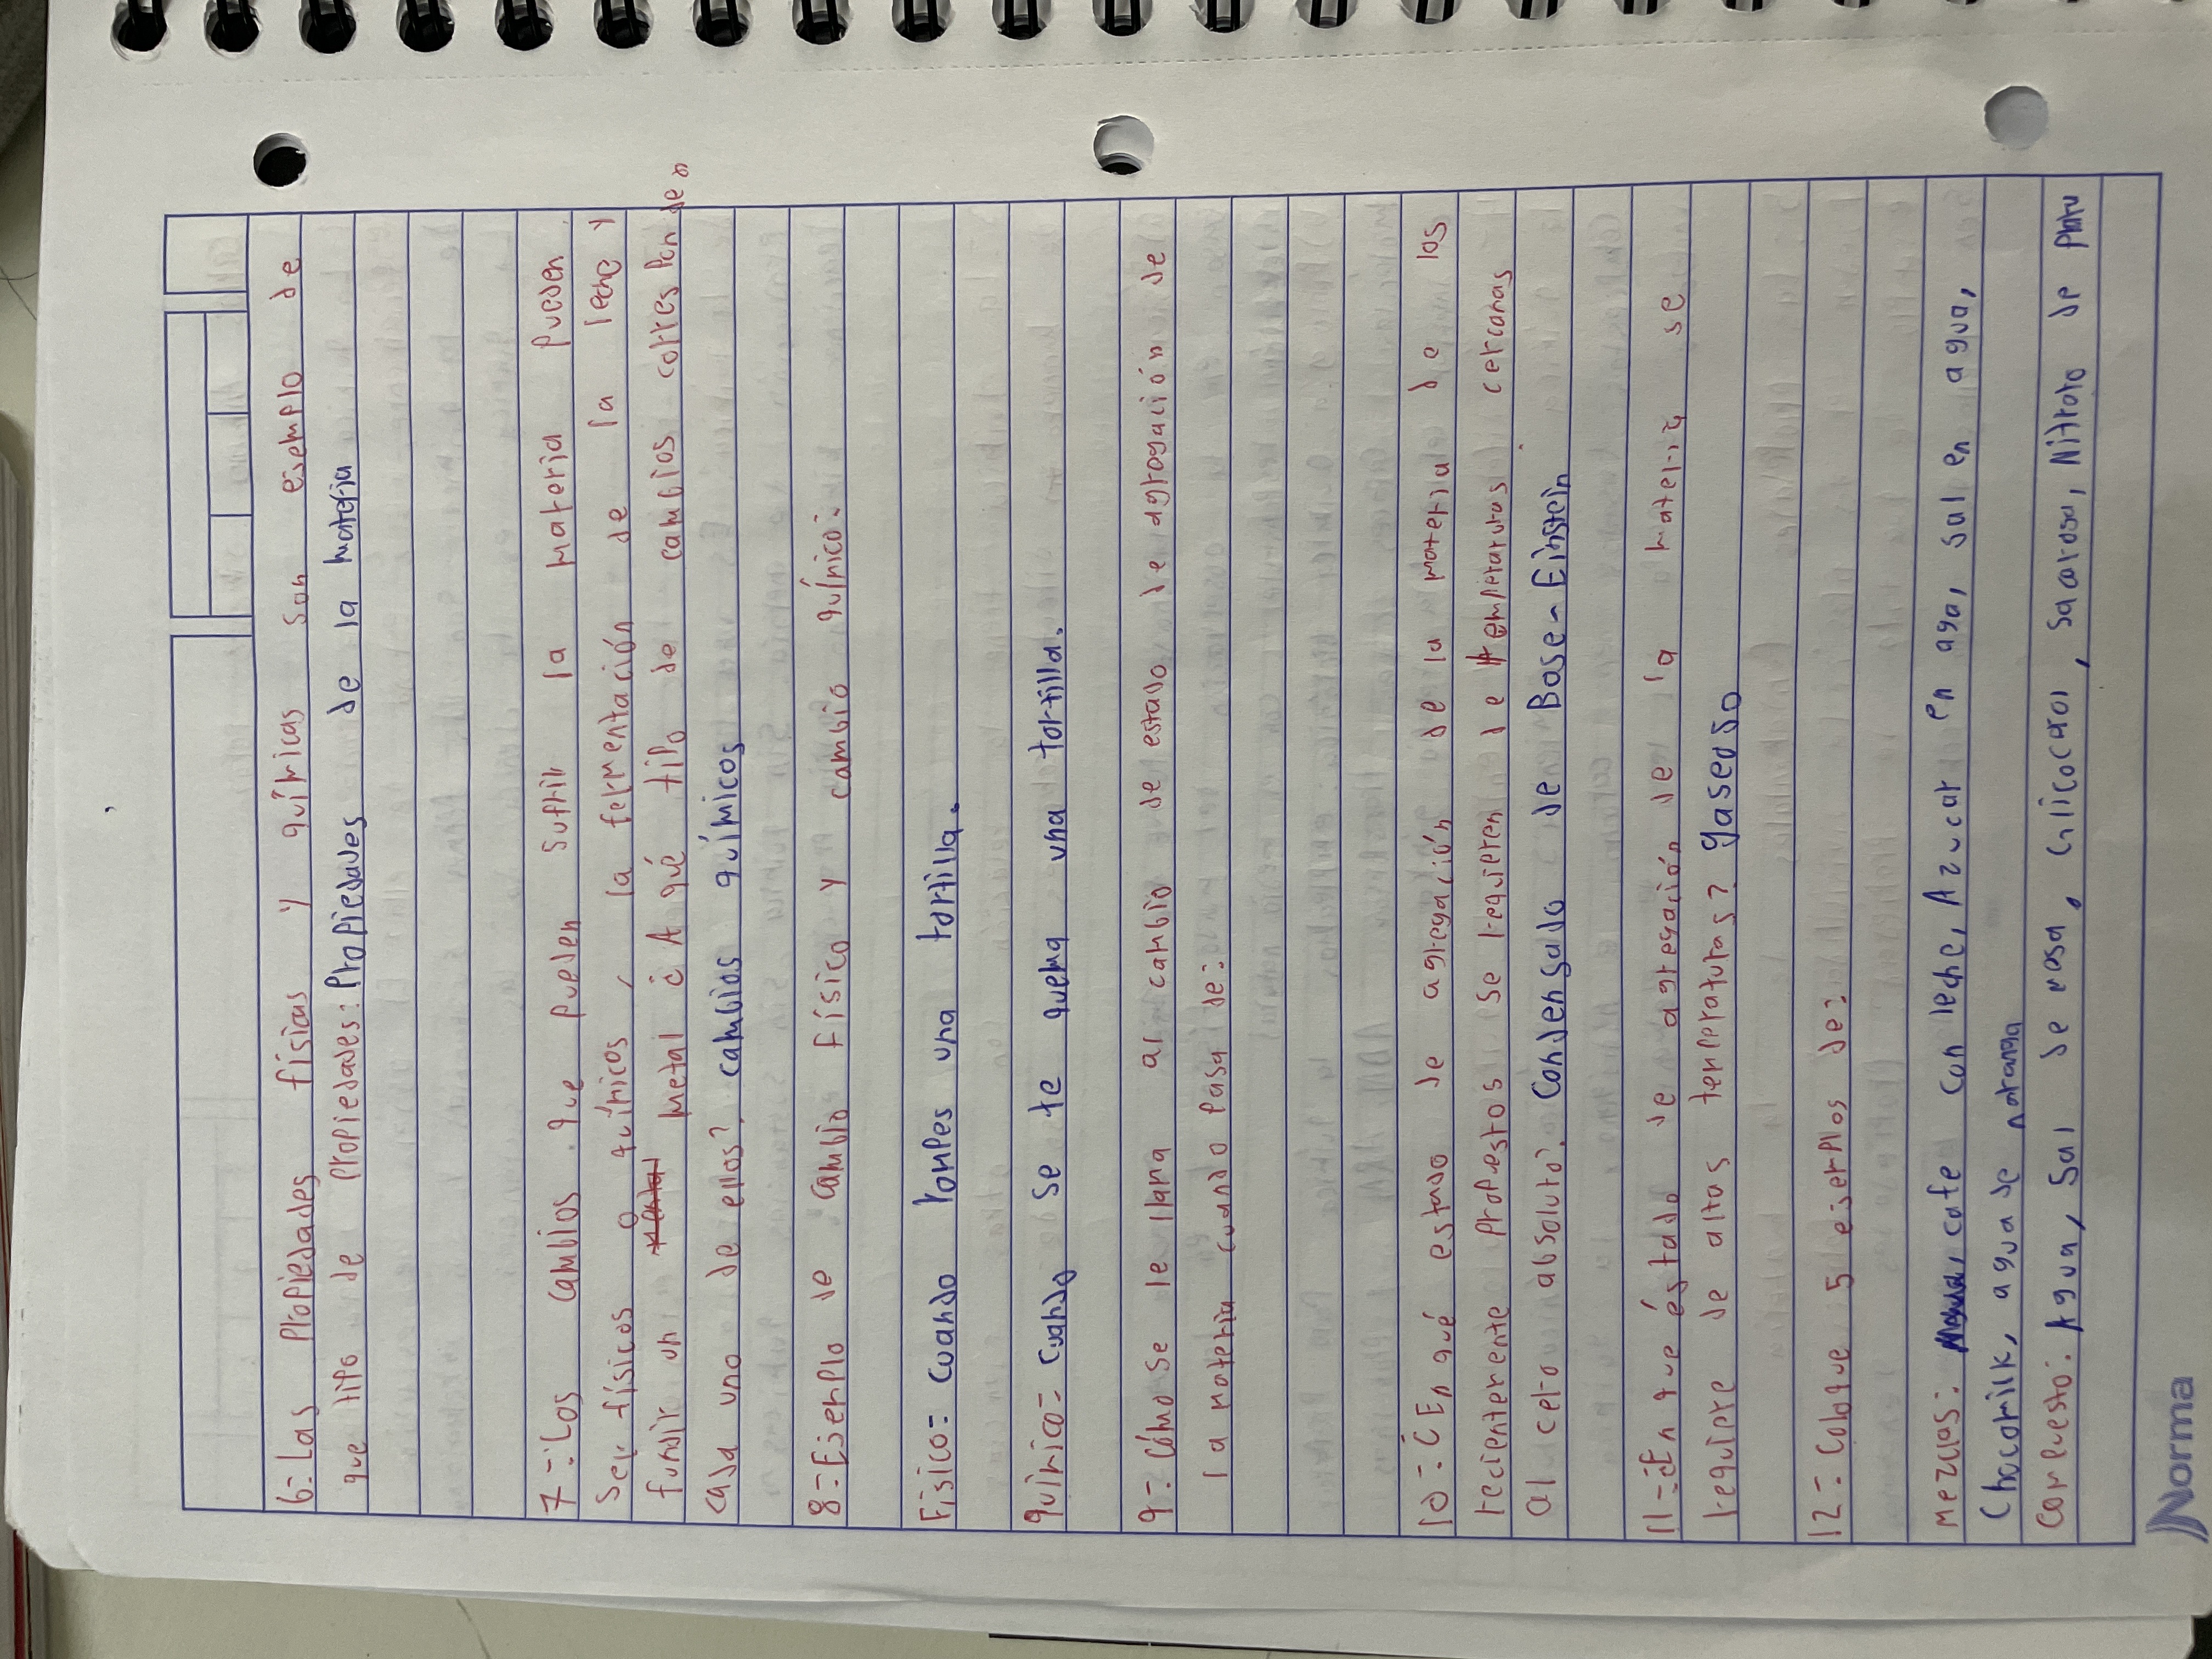 6=Las Propiedades físicas y químicas son ejemplo de
que tipo de propiedades: Propiedades de la materia
7=Los cambios que pueden sufrir la materia pueden
ser físicos o químicos, la fermentación de la leche y
fundir un metal ¿A qué tipo de cambios corresponden
cada uno de ellos?. cambios químicos
8=Ejemplo de cambio físico y cambio químico:
Físico= cuando rompes una tortilla.
químico= cuando se te quema una tortilla.
9= Cómo se le llama al cambio de estado de agregación de
la materia cuando pasa de:
10=¿En qué estado de agregación de la materia de los
recientemente propuestos se requieren de temperaturas cercanas
al cero absoluto?. Condensado de Bose-Einstein
11=¿En que éstado de agregación de la materia se
requiere de altas temperaturas? gaseoso
12=Coloque 5 ejemplos de:
Mezclas: cafe con leche, Azucar en aga, sal en agua,
Chocomilk, agua de naranja
Compuesto: Agua, Sal de mesa, Glicocarol, Sacarosa, Nitrato de Plata
Norma